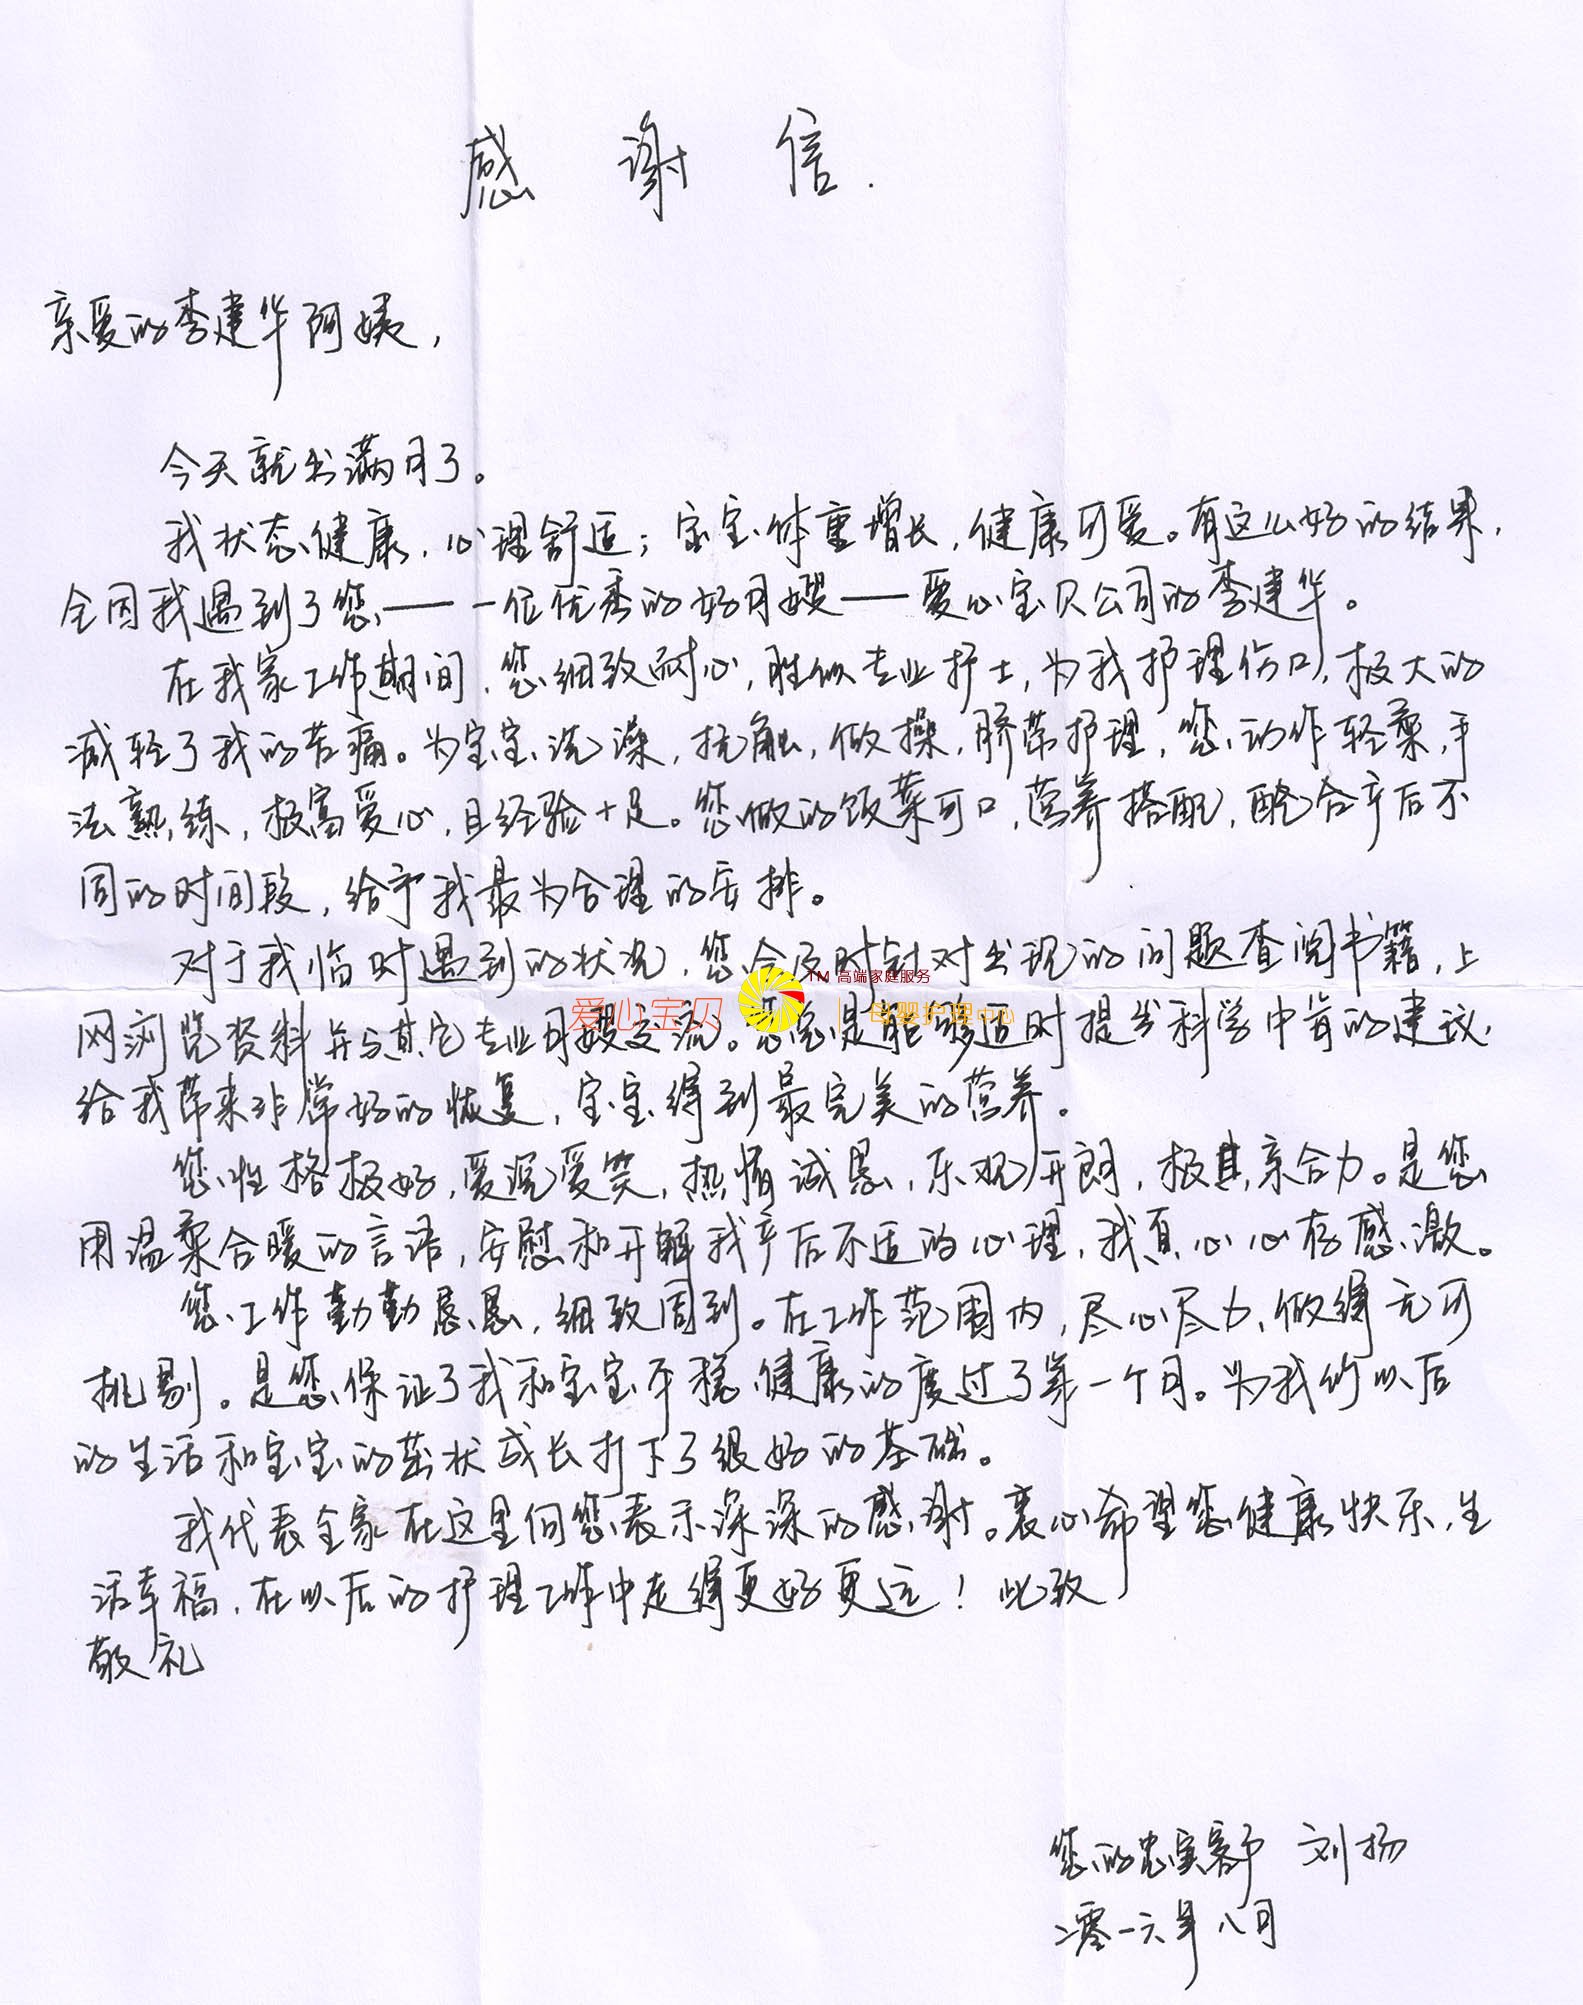 感谢信.
亲爱的李建华阿姨,
今天就出满月了。
我状态健康,心理舒适;宝宝体重增长,健康可爱。有这么好的结果,
全因我遇到了您——一位优秀的好月嫂——爱心宝贝公司的李建华。
在我家工作期间,您细致耐心,胜似专业护士,为我护理伤口,极大的
减轻了我的苦痛。为宝宝洗澡,抚触,做操,脐带护理,您动作轻柔,手
法熟练,极富爱心,且经验十足。您做的饭菜可口,营养搭配,配合产后不
同的时间段,给予我最为合理的安排。
对于我临时遇到的状况,您会及时针对出现的问题查阅书籍,上
TM 高端家庭服务
爱心宝贝 母婴护理中心
网浏览资料并与其它专业月嫂交流。您总是能够适时提出科学中肯的建议,
给我带来非常好的恢复,宝宝得到最完美的营养。
您性格极好,爱说爱笑,热情诚恳,乐观开朗,极其亲合力。是您
用温柔合暖的言语,安慰和开解我产后不适的心理,我真心心存感激。
您工作勤勤恳恳,细致周到。在工作范围内,尽心尽力,做得无可
挑剔。是您保证了我和宝宝平稳健康的度过了第一个月。为我们以后
的生活和宝宝的茁状成长打下了很好的基础。
我代表全家在这里向您表示深深的感谢。衷心希望您健康快乐,生
活幸福,在以后的护理工作中走得更好更远!此致
敬礼
您的忠实客户 刘扬
二零一六年八月